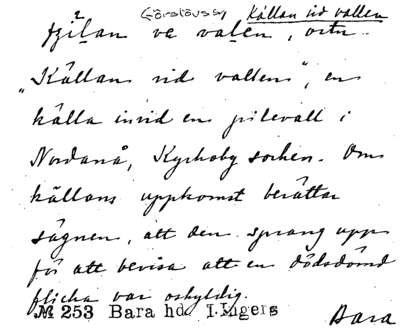 Görslövssg Källan vid vallen
tjźilan ve valen, ortn.
"Källan vid vallen", en
källa invid en pilevall i
Nordanå, Kyrkoby socken. Om
källans uppkomst berättar
sägnen, att den sprang upp
för att bevisa att en dödsdömd
flicka var oskyldig.
№ 253 Bara hd. I. Ingers
Bara